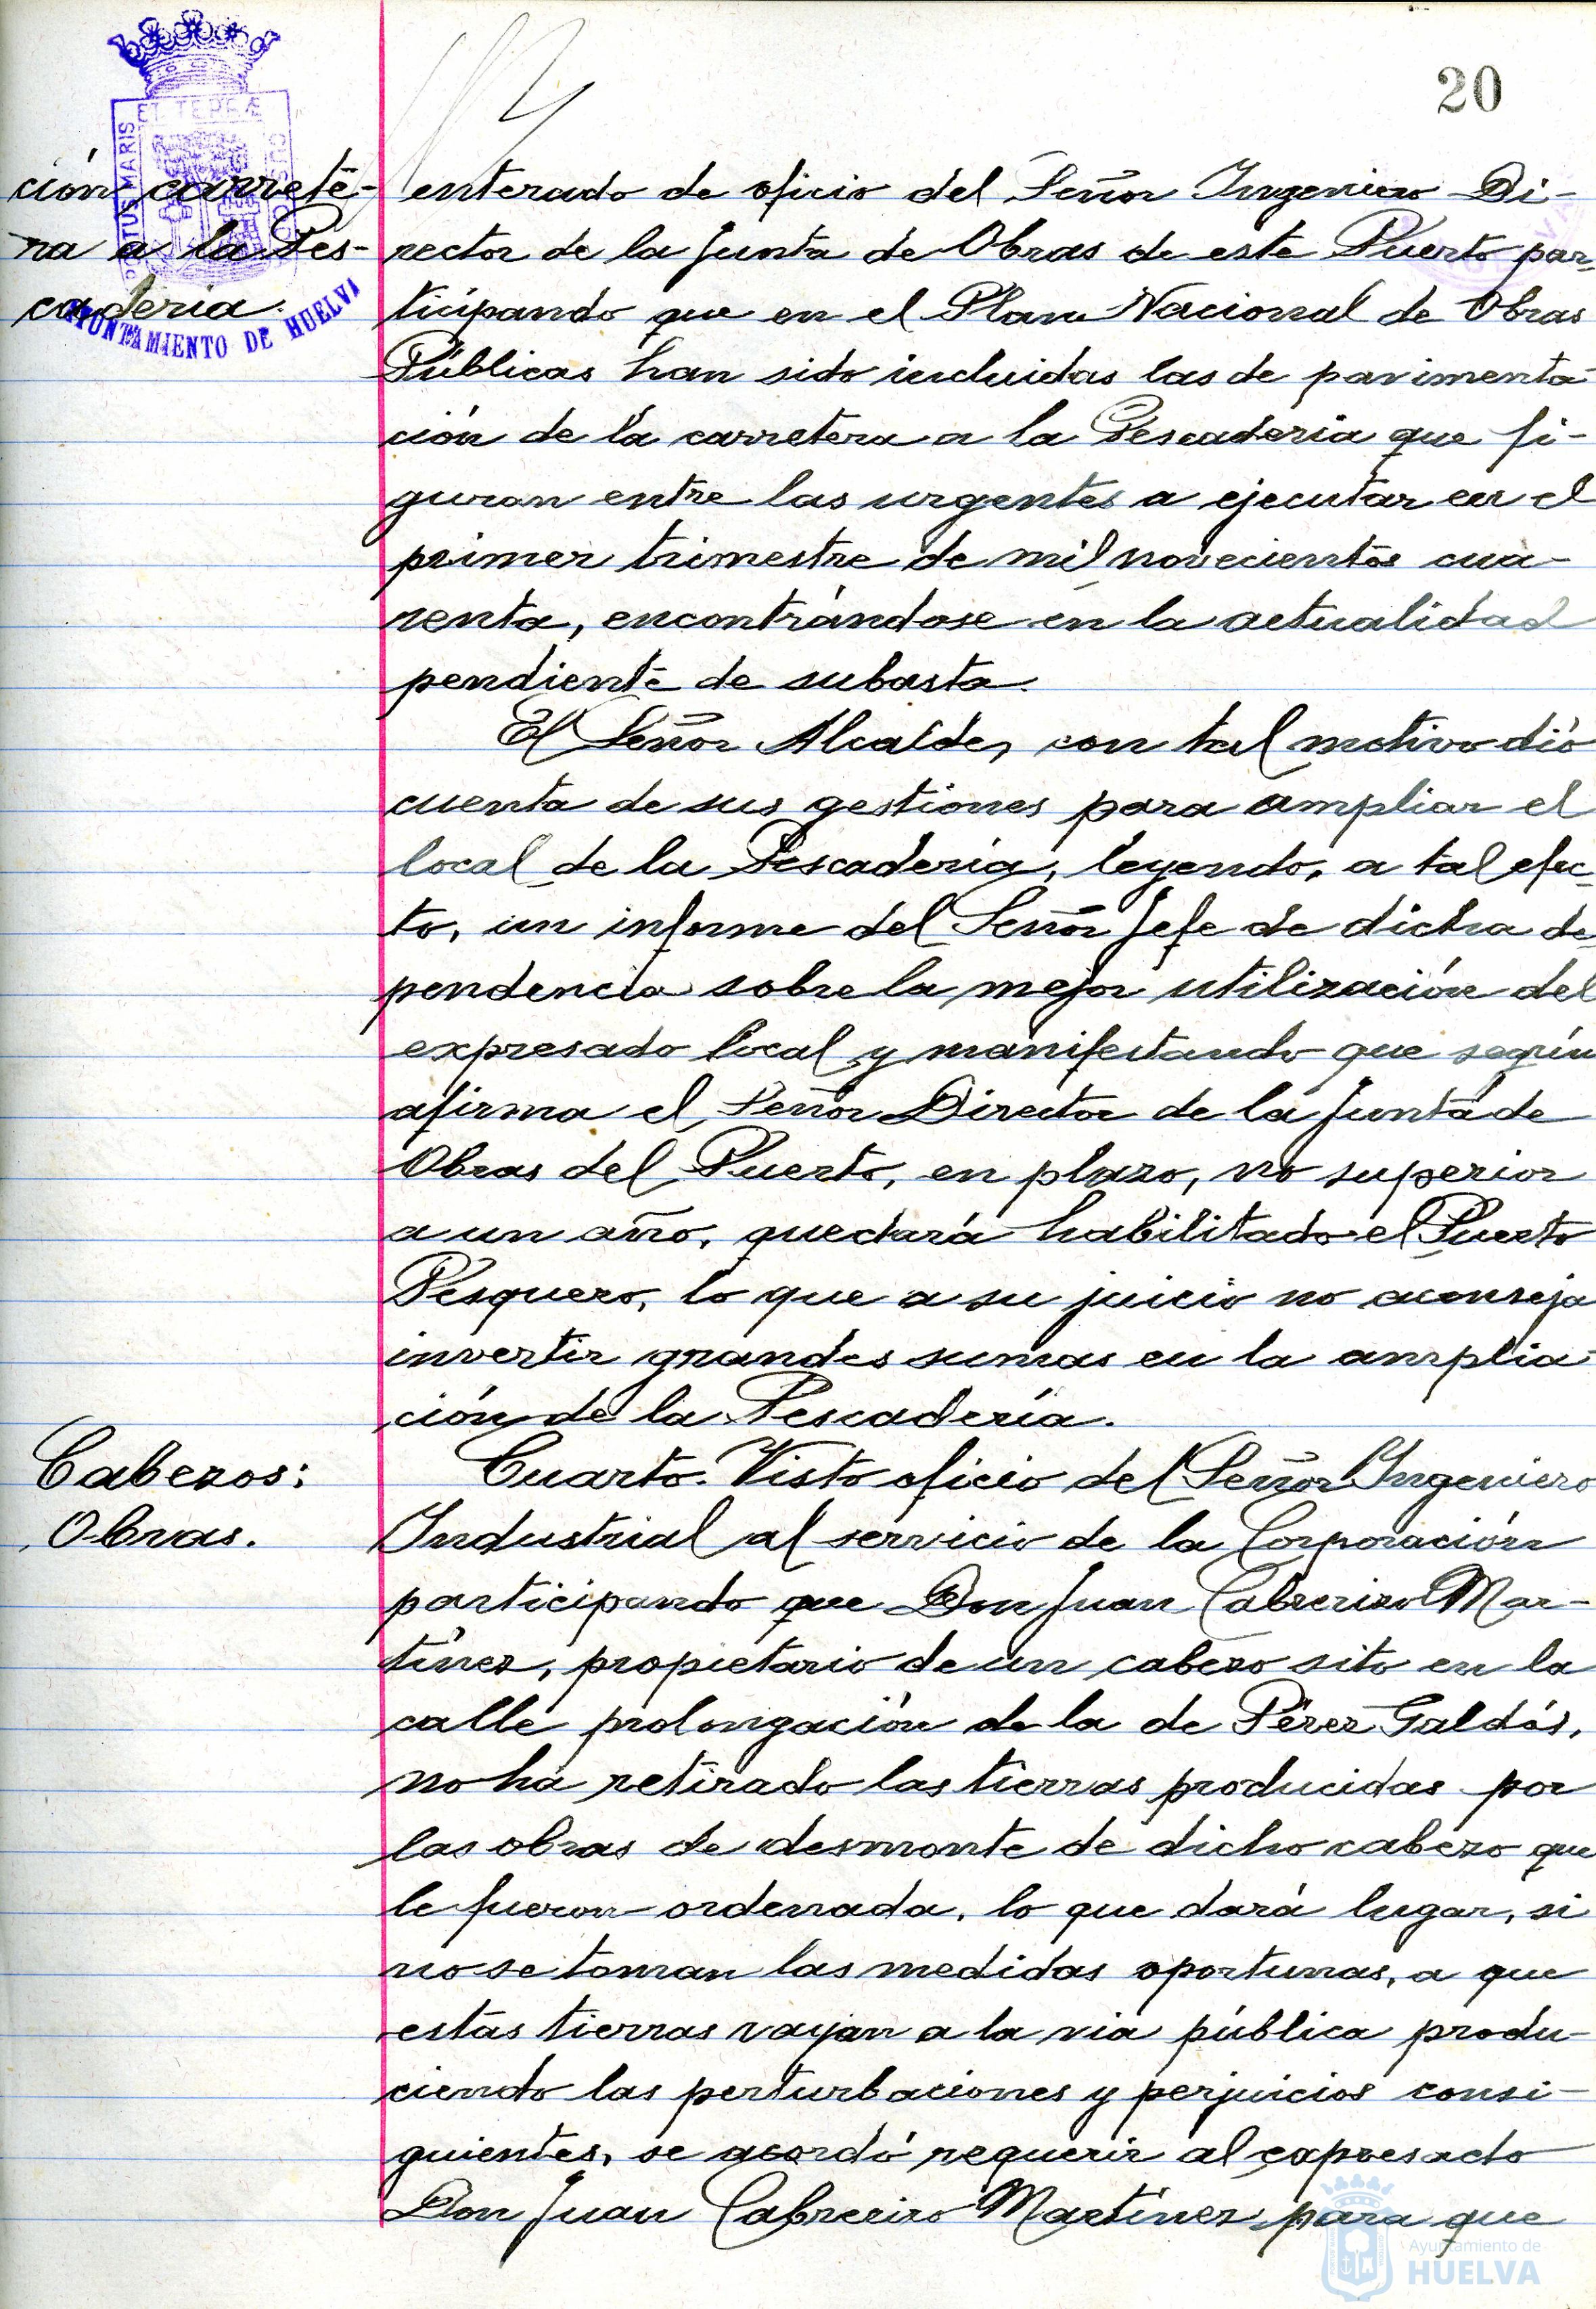 20
ET TERRÆ
PORTUS MARIS
CUSTODIA
AYUNTAMIENTO DE HUELVA
ción carrete-
ra a la Pes-
cadería.
enterado de oficio del Señor Ingeniero Di-
rector de la Junta de Obras de este Puerto par-
ticipando que en el Plan Nacional de Obras
Públicas han sido incluidas las de pavimenta-
ción de la carretera a la Pescadería que fi-
guran entre las urgentes a ejecutar en el
primer trimestre de mil novecientos cua-
renta, encontrándose en la actualidad
pendiente de subasta.
El Señor Alcalde, con tal motivo dió
cuenta de sus gestiones para ampliar el
local de la Pescadería, leyendo, a tal efec-
to, un informe del Señor Jefe de dicha de-
pendencia sobre la mejor utilización del
expresado local y manifestando que según
afirma el Señor Director de la Junta de
Obras del Puerto, en plazo, no superior
a un año, quedará habilitado el Puerto
Pesquero, lo que a su juicio no aconseja
invertir grandes sumas en la amplia-
ción de la Pescadería.
Cabezos:
Obras.
Cuarto. Visto oficio del Señor Ingeniero
Industrial al servicio de la Corporación
participando que Don Juan Cabrerizo Mar-
tínez, propietario de un cabezo sito en la
calle prolongación de la de Pérez Galdós,
no ha retirado las tierras producidas por
las obras de desmonte de dicho cabezo que
le fueron ordenada, lo que dará lugar, si
no se toman las medidas oportunas, a que
estas tierras vayan a la vía pública produ-
ciendo las perturbaciones y perjuicios consi-
guientes, se acordó requerir al expresado
Don Juan Cabrerizo Martínez para que
Ayuntamiento de
HUELVA